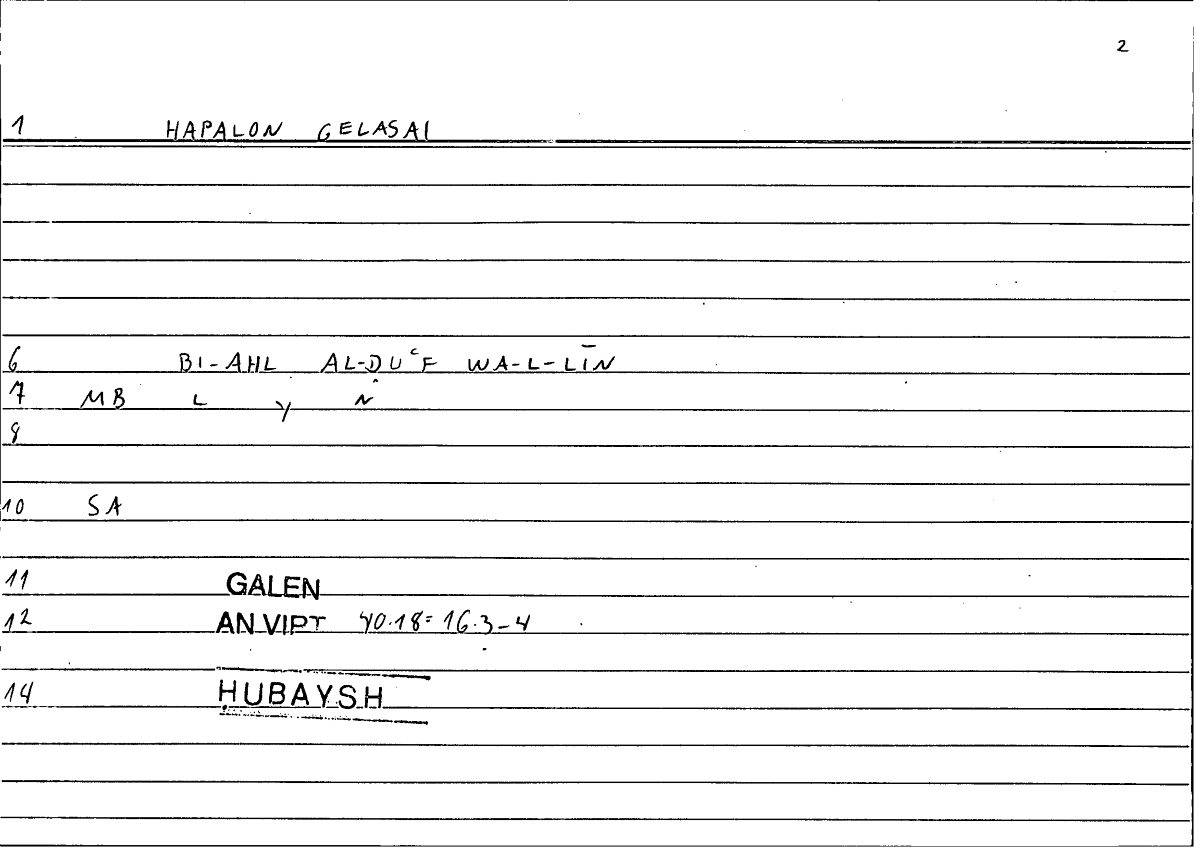 2
1 HAPALON GELASAI
6 BI-AHL AL-ḌUʿF WA-L-LĪN
7 MB L Y N
8
10 SA
11 GALEN
12 AN VIPT 40.18=16.3-4
14 ḤUBAYSH